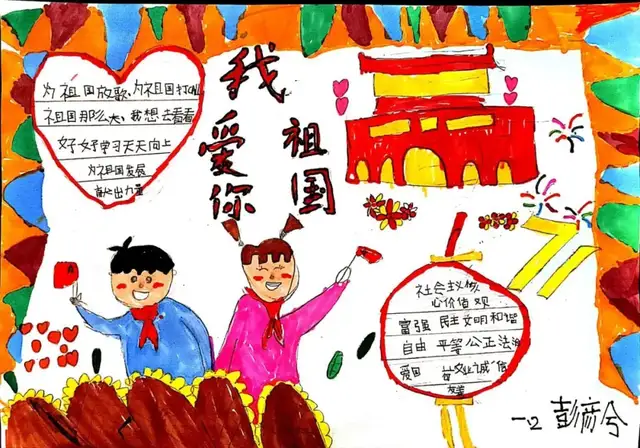 我爱你
祖国
为祖国放歌、为祖国打
祖国那么大、我想去看看
好好学习天天向上
为祖国发展
献出力量
社会主义核
心价值观
富强 民主文明和谐
自由 平等公正法治
爱国 敬业诚信
友善
一2 彭彦兮